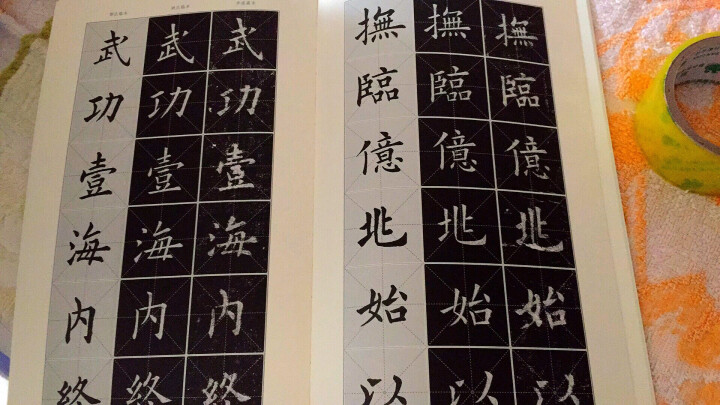 撫臨億兆始以
撫臨億兆始以
撫臨億兆始以
武功壹海内終
武功壹海内終
武功壹海内終